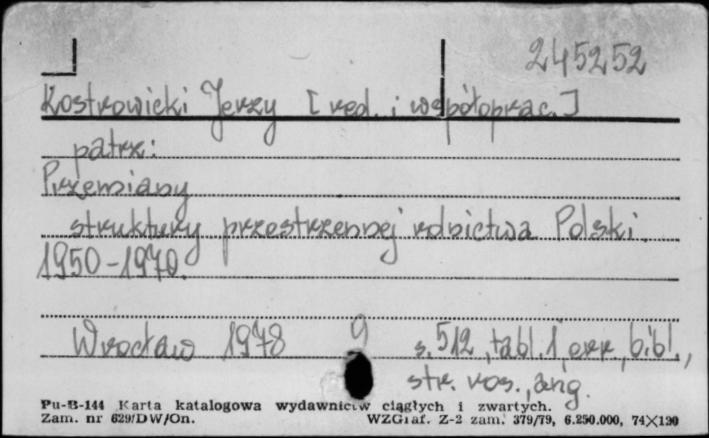 245252
Kostrowicki Jerzy [red. i współoprac.]
patrz:
Przemiany
struktury przestrzennej rolnictwa Polski.
1950-1970.
Wrocław 1978 9 s. 512, tabl. 1, err., bibl.,
str. ros., ang.
Pu-B-144 Karta katalogowa wydawnictw ciągłych i zwartych.
Zam. nr 629/DW/On. WZGraf. Z-2 zam. 379/79, 6.250.000, 74×120